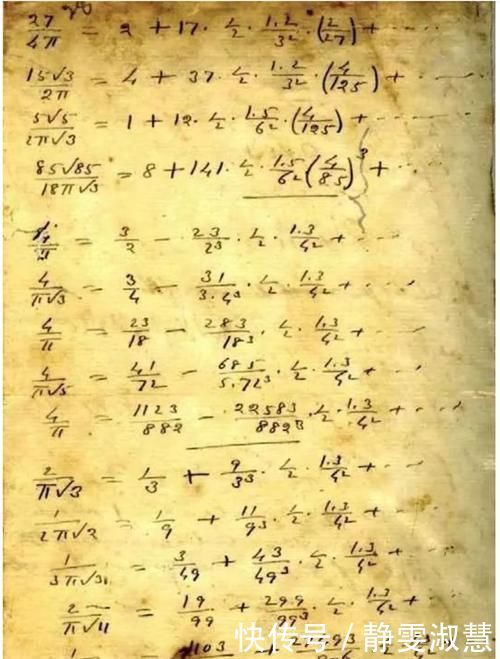 27/4π = 2 + 17·1/2·1.2/3²·(2/27) + ····
15√3/2π = 4 + 37·1/2·1.2/3²·(4/125) + ····
5√5/2π√3 = 1 + 12·1/2·1.5/6²·(4/125) + ····
85√85/18π√3 = 8 + 141·1/2·1.5/6²(4/85)³ + ···
4/π = 3/2 − 23/2³·1/2·1.3/4² + ····
4/π√3 = 3/4 − 31/3.4³·1/2·1.3/4² + ····
4/π = 23/18 − 283/18³·1/2·1.3/4² + ····
4/π√5 = 41/72 − 685/5.72³·1/2·1.3/4² + ····
4/π = 1123/882 − 22583/882³·1/2·1.3/4² + ····
2/π√3 = 1/3 + 9/3³·1/2·1.3/4² + ····
1/2π√2 = 1/9 + 11/9³·1/2·1.3/4² + ····
1/3π√3 = 3/49 + 43/49³·1/2·1.3/4² + ····
2/π√11 = 19/99 + 299/99³·1/2·1.3/4² + ···
1103
快传号/静雯淑慧